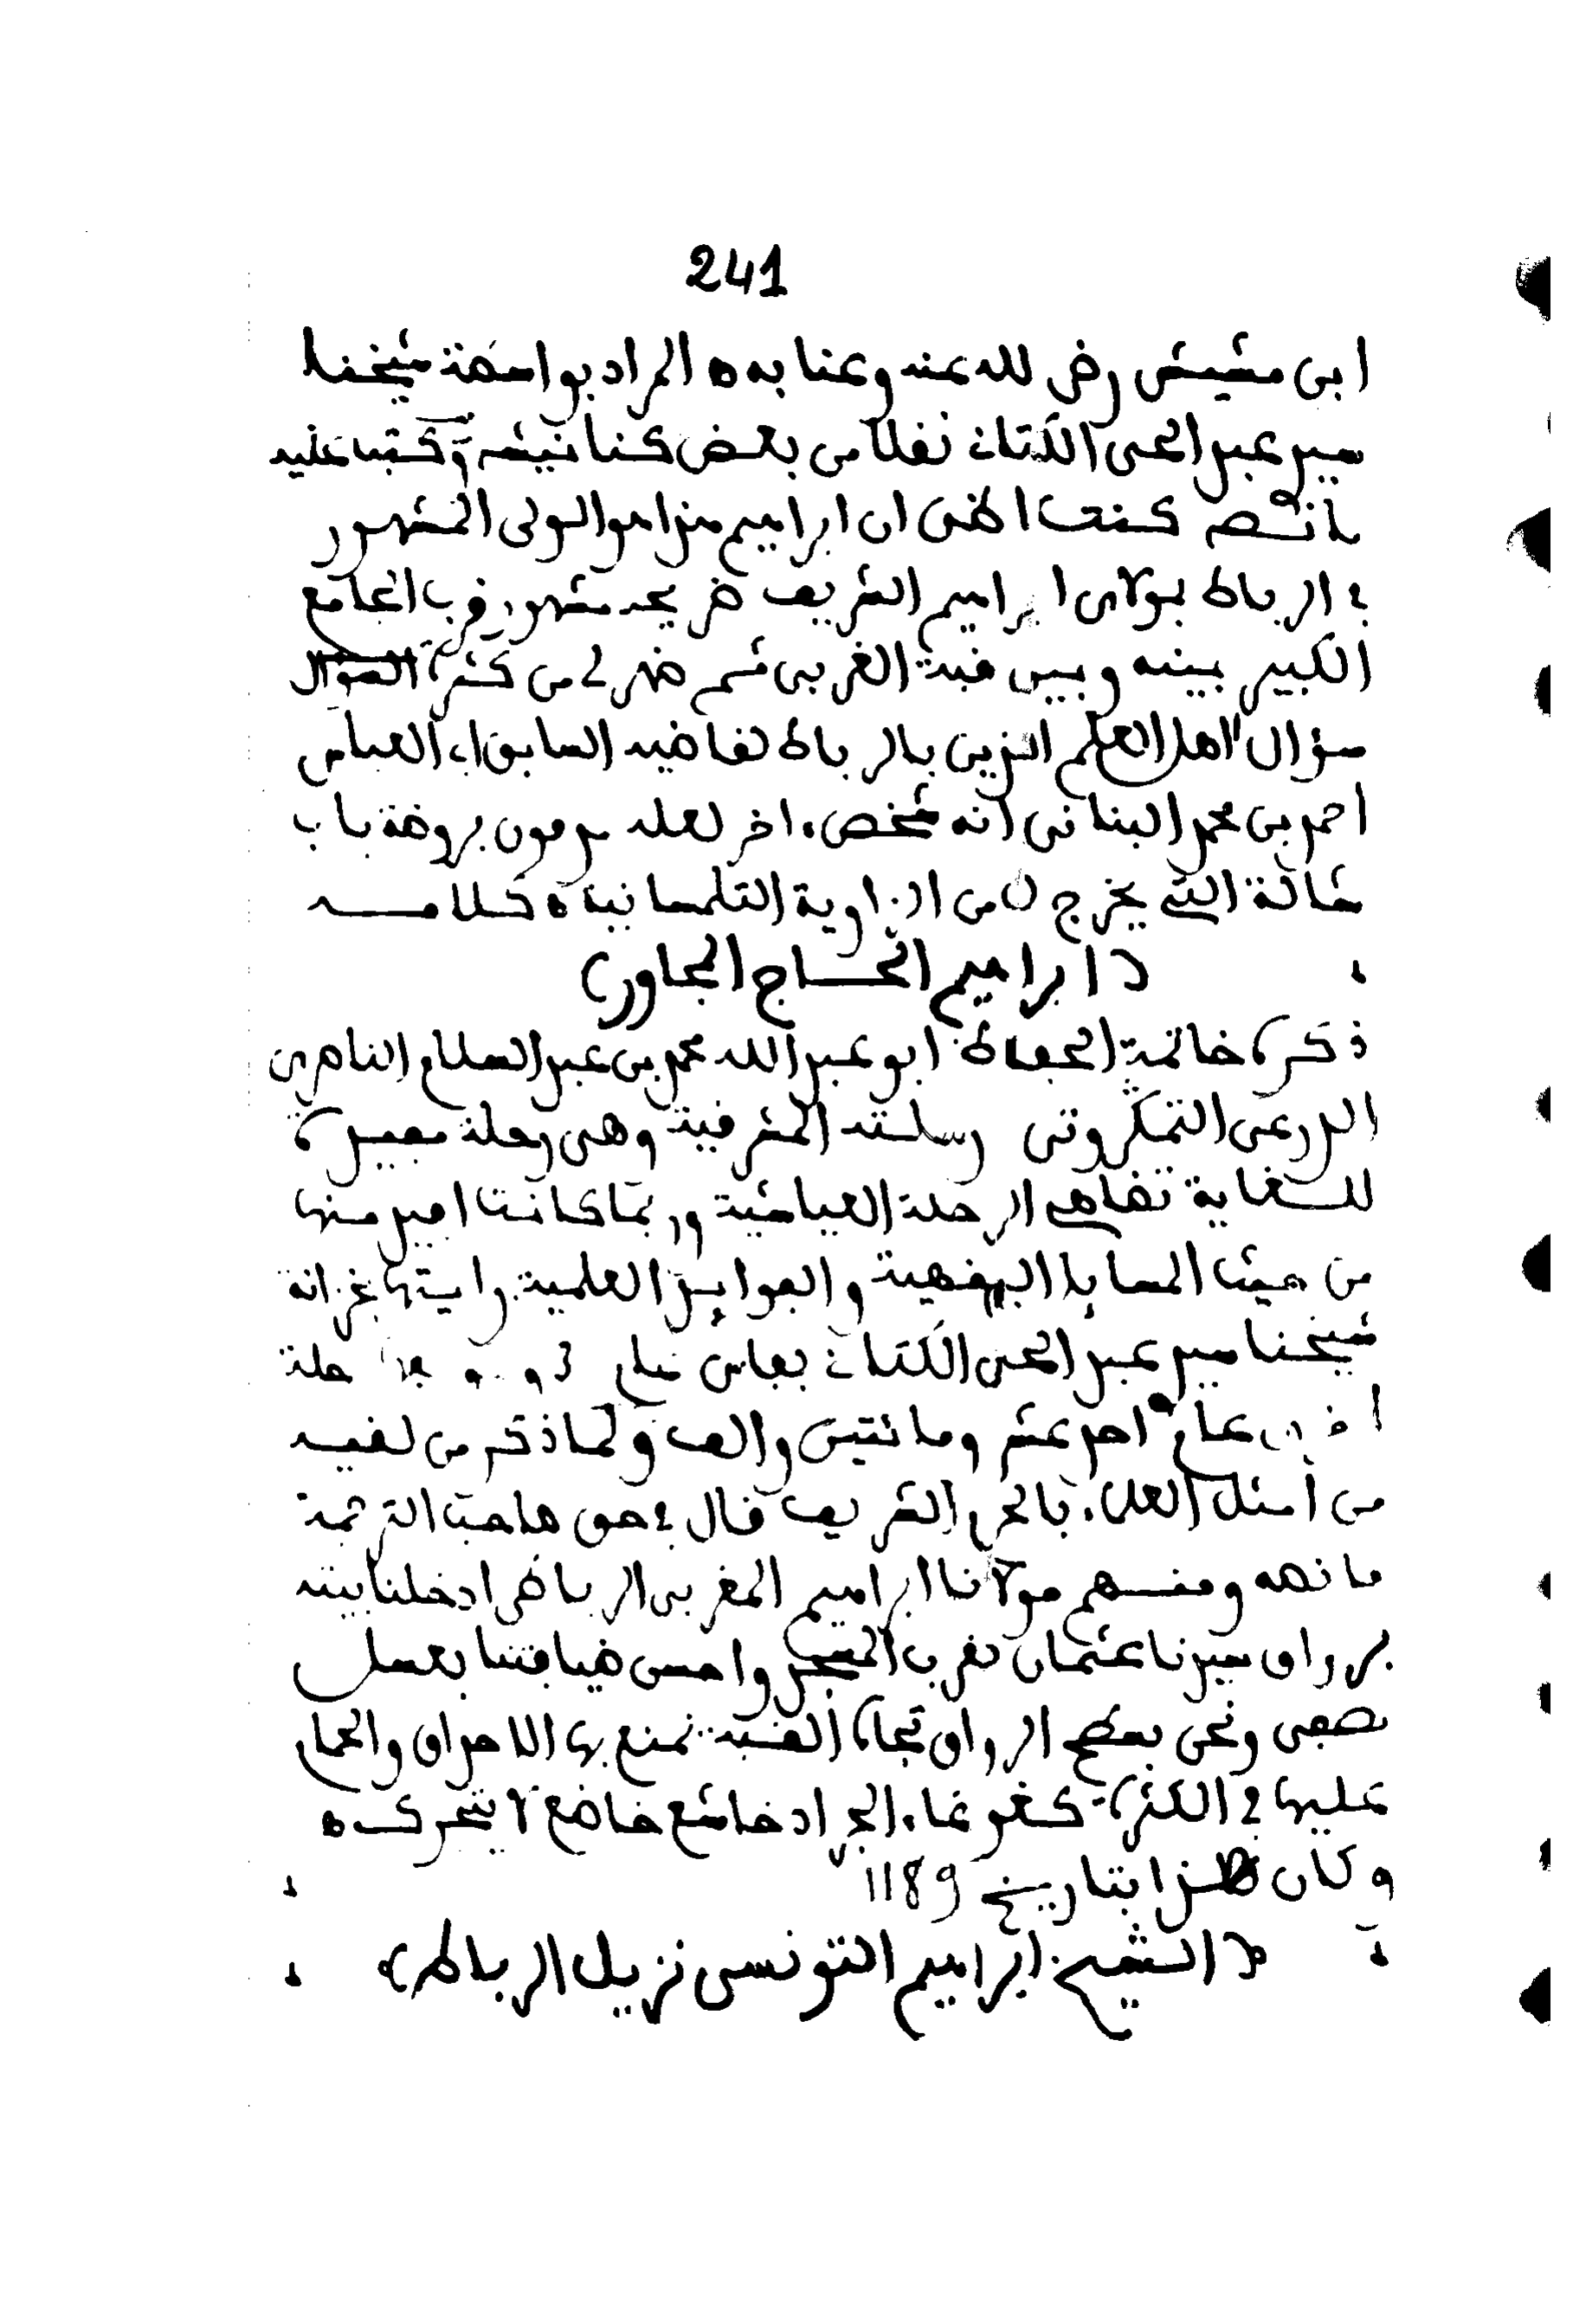 241
ابن مشيش رضي الله عنه وعنا به ه المراد بواسطة شيخنا
سيدي عبد الحي الكتاني نقلا من بعض كنانيشه وكتب عليه
ما نصه كنت اظن ان ابراهيم هذا هو الولي المشهور
في الرباط بمولاي ابراهيم الشريف ضريحه مشهور قرب الجامع
الكبير بينه وبين قبة الغربي ثم ظهر لي من كثرة السؤال
سؤال اهل العلم الذين بالرباط كقاضيه السابق ابي العباس
احمد بن محمد البناني انه شخص ءاخر لعله مدفون بروضة باب
شالة التي يخرج لها من الزاوية التلمسانية ه كلامه
(ابراهيم الحاج المجاور)
ذكره خاتمة الحفاظ ابو عبد الله محمد بن عبد السلام الناصري
الدرعي التمكروتي رحلته المشرقية وهي رحلة مفيدة
للغاية تضاهي الرحلة العياشية وربما كانت افيد منها
من حيث المسايل الفقهية والفوايد العلمية رايتها بخزانة
شيخنا سيدي عبد الحي الكتاني بفاس حلة
عام احد عشر ومائتين والف ولما ذكر من لقيه
من امثل العلماء بالحرم الشريف قال في حق صاحب الترجمة
ما نصه ومنهم مولانا ابراهيم المغربي الرباطي ادخلنا بيته
برواق سيدنا عثمان بقرب المسجد واحسن ضيافتنا بعسل
مصفى ونحن بسطح الرواق تجاه القبة نمتع بها الاحداق والحمام
عليها في الكثرة كغوغاء الجراد خاشع خاضع لا يتحرك ه
وكان هذا بتاريخ 1189
(الشيخ ابراهيم التونسي نزيل الرباط)